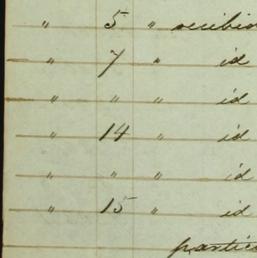 " 5 " recibid
" 7 " id
" " " id
" 14 " id
" " " id
" 15 " id
partic